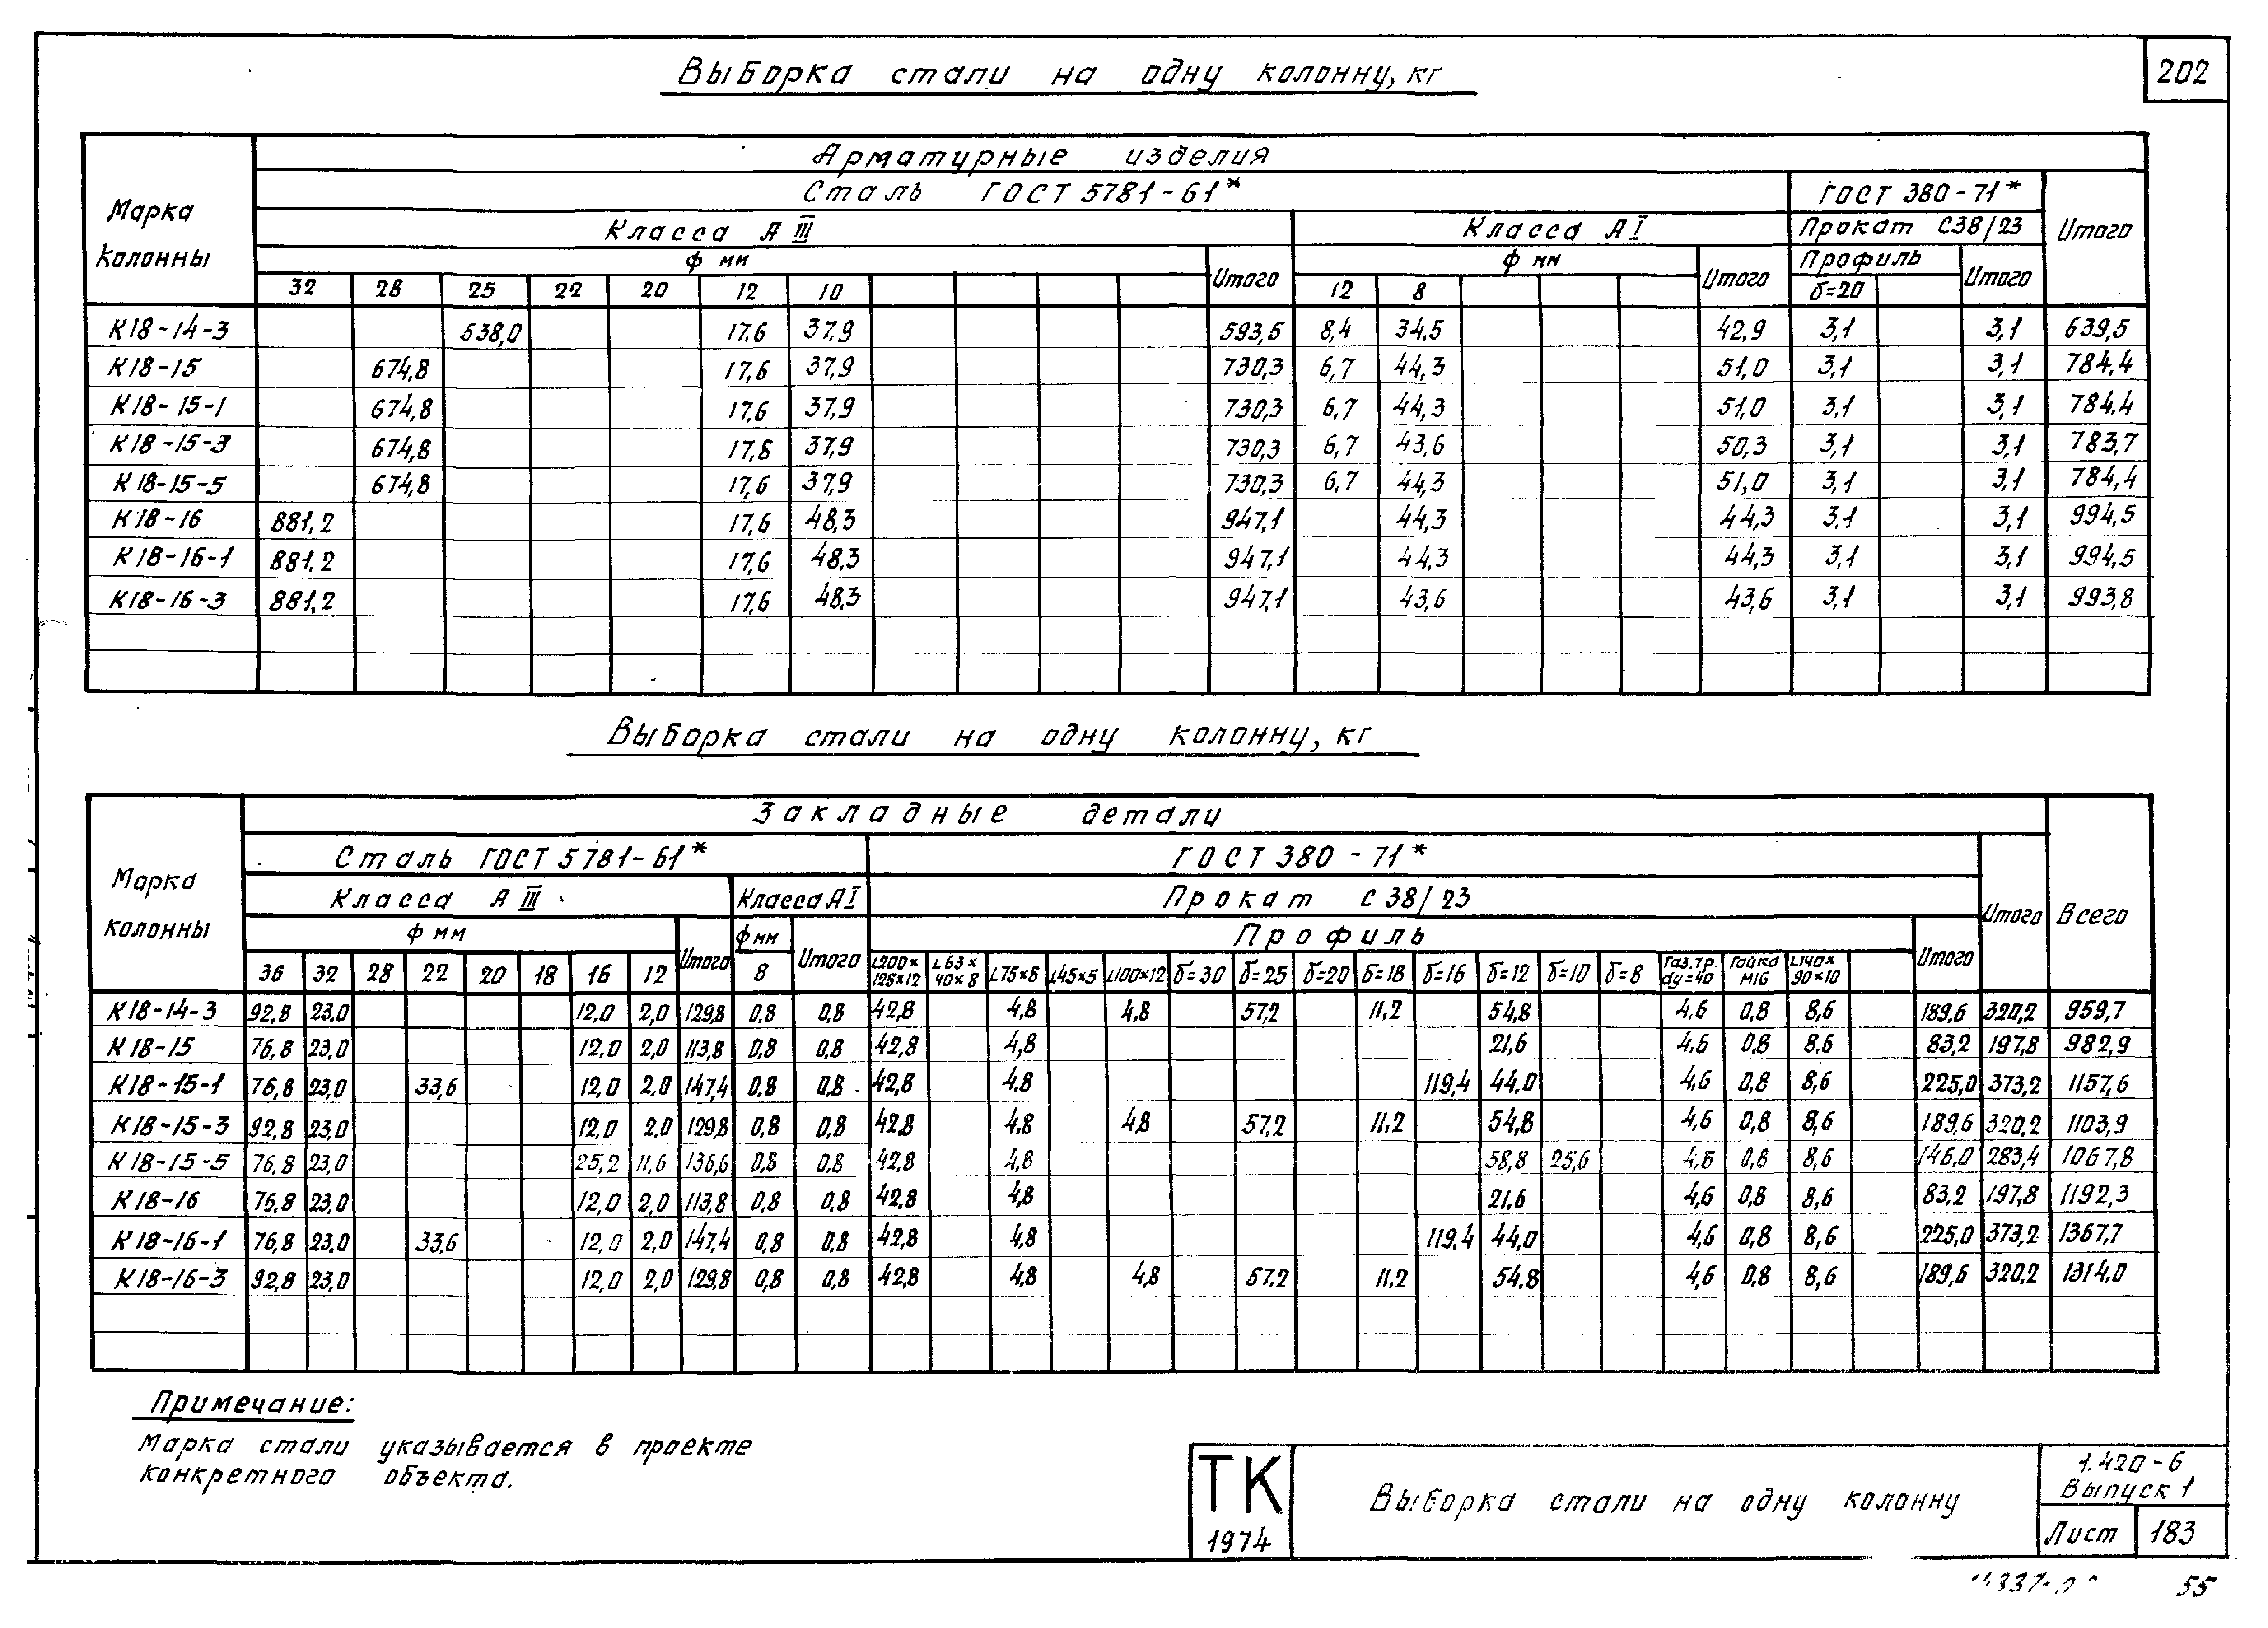 202
Выборка стали на одну колонну, кг
Марка колонны
Арматурные изделия
Сталь ГОСТ 5781-61* ГОСТ 380-71* Итого
Класса А III Класса А I Прокат С38/23
ф мм Итого ф мм Итого Профиль Итого
32 28 25 22 20 12 10 12 8 δ=20
К18-14-3 538,0 17,6 37,9 593,5 8,4 34,5 42,9 3,1 3,1 639,5
К18-15 674,8 17,6 37,9 730,3 6,7 44,3 51,0 3,1 3,1 784,4
К18-15-1 674,8 17,6 37,9 730,3 6,7 44,3 51,0 3,1 3,1 784,4
К18-15-3 674,8 17,6 37,9 730,3 6,7 43,6 50,3 3,1 3,1 783,7
К18-15-5 674,8 17,6 37,9 730,3 6,7 44,3 51,0 3,1 3,1 784,4
К18-16 881,2 17,6 48,3 947,1 44,3 44,3 3,1 3,1 994,5
К18-16-1 881,2 17,6 48,3 947,1 44,3 44,3 3,1 3,1 994,5
К18-16-3 881,2 17,6 48,3 947,1 43,6 43,6 3,1 3,1 993,8
Выборка стали на одну колонну, кг
Марка колонны
Закладные детали Всего
Сталь ГОСТ 5781-61* ГОСТ 380-71* Итого
Класса А III Класса А I Прокат С 38/23
ф мм Итого ф мм Итого Профиль Итого
36 32 28 22 20 18 16 12 8 L200×125×12 L63×40×8 L75×8 L45×5 L100×12 δ=30 δ=25 δ=20 δ=18 δ=16 δ=12 δ=10 δ=8 Газ.тр. dy=40 Гайка М16 L140×90×10
К18-14-3 92,8 23,0 12,0 2,0 129,8 0,8 0,8 42,8 4,8 4,8 57,2 11,2 54,8 4,6 0,8 8,6 189,6 320,2 959,7
К18-15 76,8 23,0 12,0 2,0 113,8 0,8 0,8 42,8 4,8 21,6 4,6 0,8 8,6 83,2 197,8 982,9
К18-15-1 76,8 23,0 33,6 12,0 2,0 147,4 0,8 0,8 42,8 4,8 119,4 44,0 4,6 0,8 8,6 225,0 373,2 1157,6
К18-15-3 92,8 23,0 12,0 2,0 129,8 0,8 0,8 42,8 4,8 4,8 57,2 11,2 54,8 4,6 0,8 8,6 189,6 320,2 1103,9
К18-15-5 76,8 23,0 25,2 11,6 136,6 0,8 0,8 42,8 4,8 58,8 25,6 4,6 0,8 8,6 146,0 283,4 1067,8
К18-16 76,8 23,0 12,0 2,0 113,8 0,8 0,8 42,8 4,8 21,6 4,6 0,8 8,6 83,2 197,8 1192,3
К18-16-1 76,8 23,0 33,6 12,0 2,0 147,4 0,8 0,8 42,8 4,8 119,4 44,0 4,6 0,8 8,6 225,0 373,2 1367,7
К18-16-3 92,8 23,0 12,0 2,0 129,8 0,8 0,8 42,8 4,8 4,8 57,2 11,2 54,8 4,6 0,8 8,6 189,6 320,2 1314,0
Примечание:
Марка стали указывается в проекте
конкретного объекта.
ТК
1974
Выборка стали на одну колонну
1.420-6
Выпуск 1
Лист 183
55